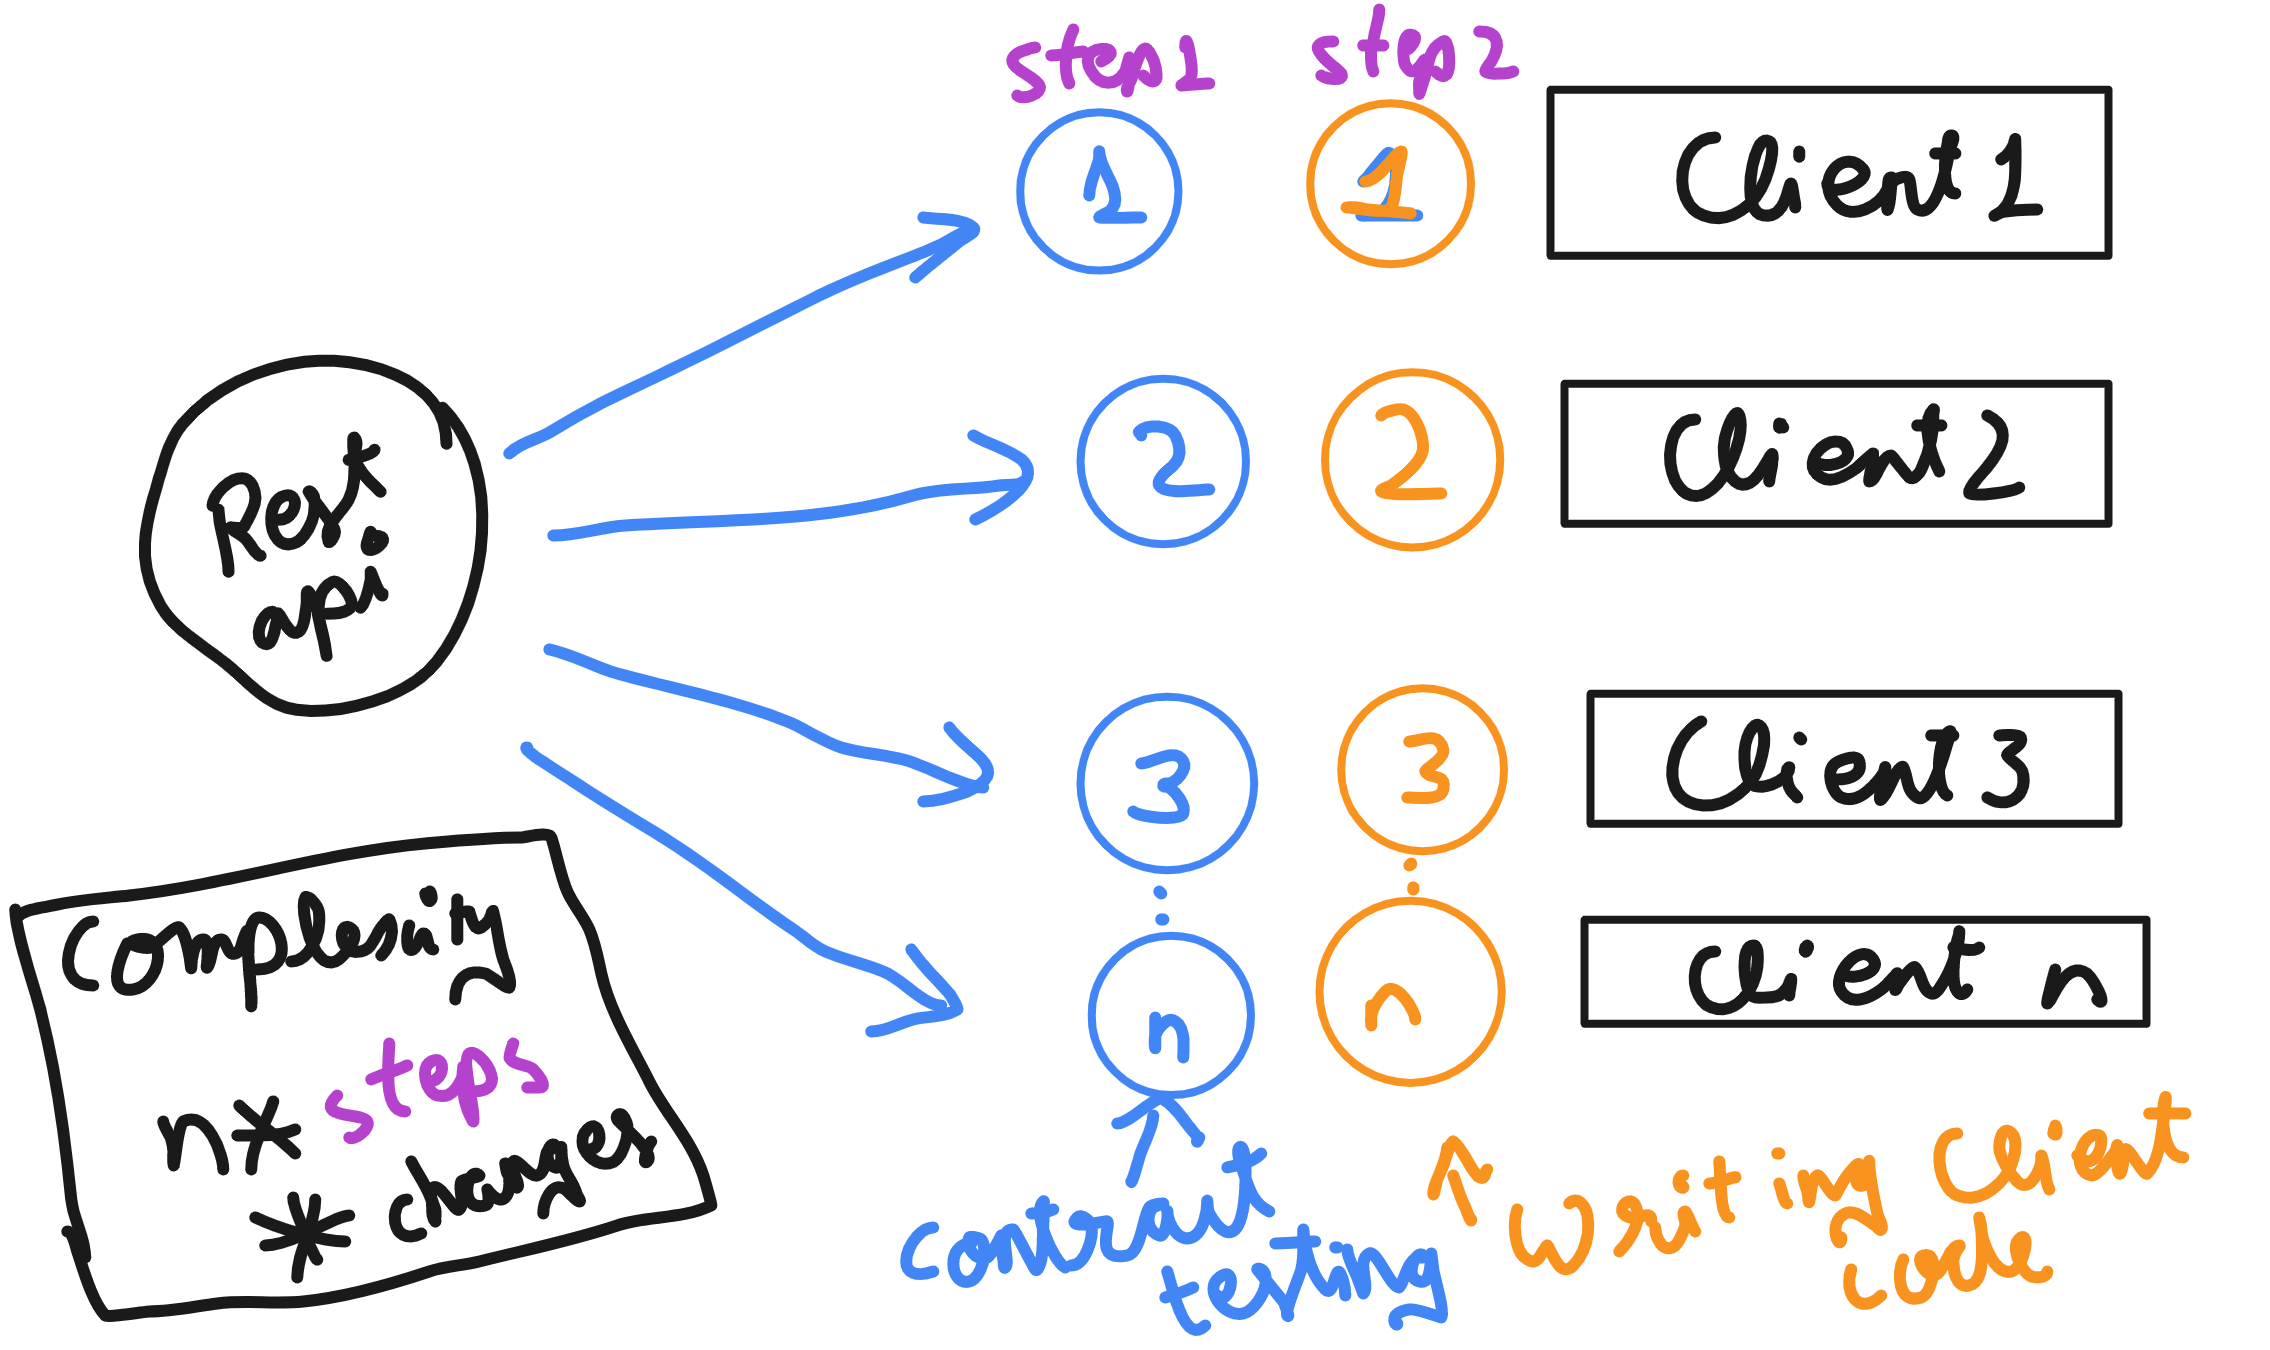 step1
step2
1
1
Client 1
2
2
Client 2
Rest
api
3
3
Client 3
n
n
Client n
Complexity
n* steps
* changes
contract
testing
writing Client
code